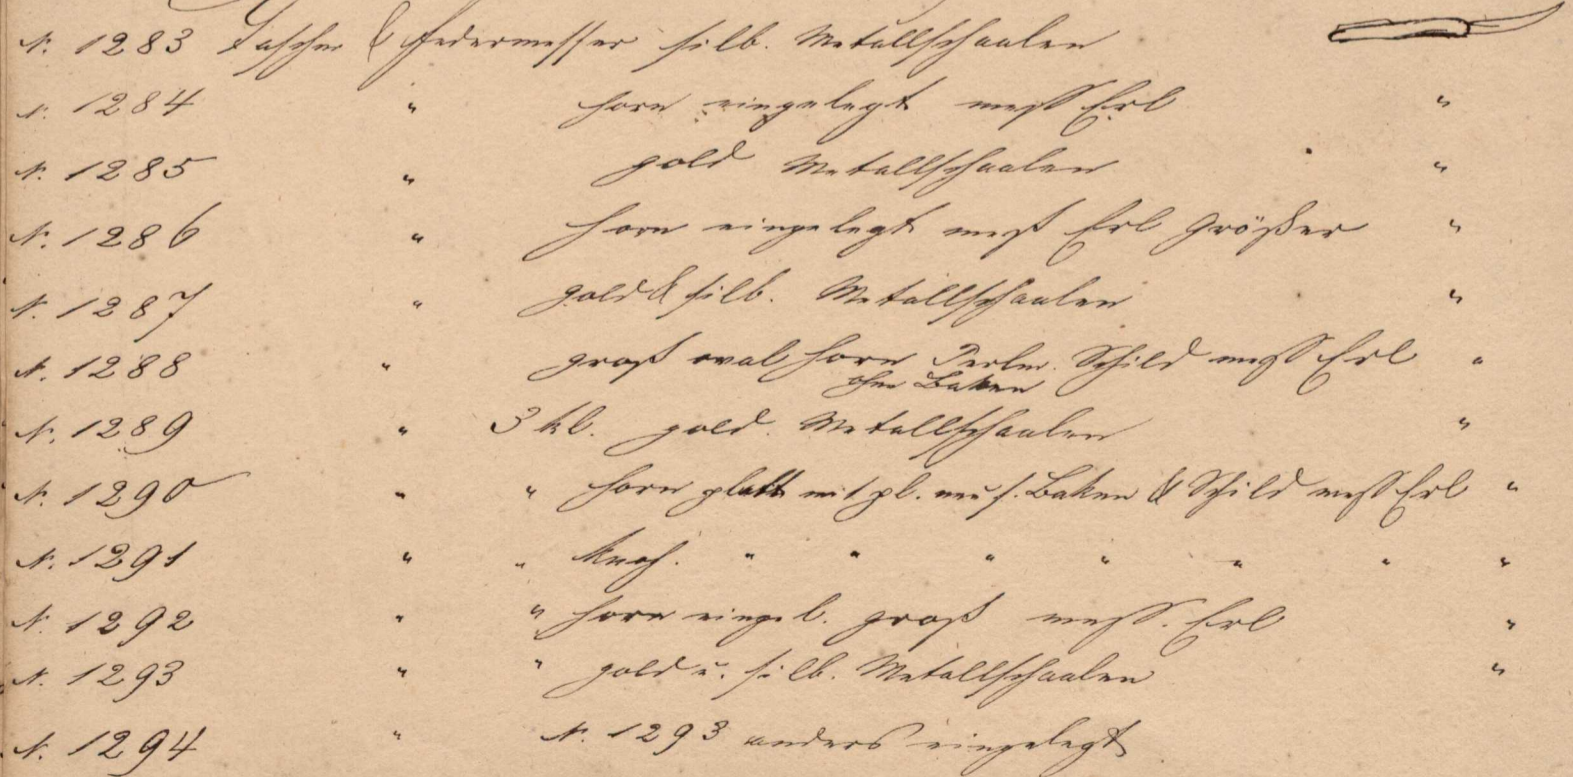 N. 1283 Taschen & Federmesser silb. Metallschaalen
N. 1284 " Horn eingelegt mess Erl "
N. 1285 " gold Metallschaalen "
N. 1286 " Horn eingelegt mess Erl Größer "
N. 1287 " gold & silb. Metallschaalen "
N. 1288 " groß oval Horn Perlm. Schild mess Erl "
ohne Baken
N. 1289 " 3 kl. gold. Metallschaalen "
N. 1290 " " Horn platt mit pl. neus. Baken & Schild mess Erl "
N. 1291 " " Knoch. " " " " " " "
N. 1292 " " Horn eingel. groß mess. Erl "
N. 1293 " " gold u. silb. Metallschaalen "
N. 1294 " N. 1293 anders eingelegt